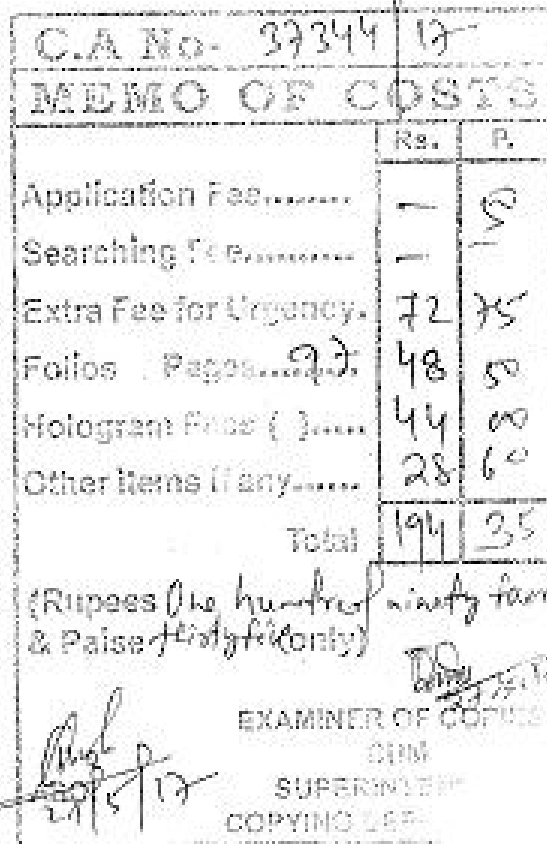 C.A No- 37344 17
MEMO OF COSTS
Rs. P.
Application Fee........ — 50
Searching Fee........... — —
Extra Fee for Urgency. 72 75
Folios Pages......97 48 50
Hologram Fees ( )..... 44 00
Other Items if any....... 28 60
Total 194 35
(Rupees One hundred ninety four
& Paise thirty five only)
EXAMINER OF COPIES
CUM
COPYING
27/5/17